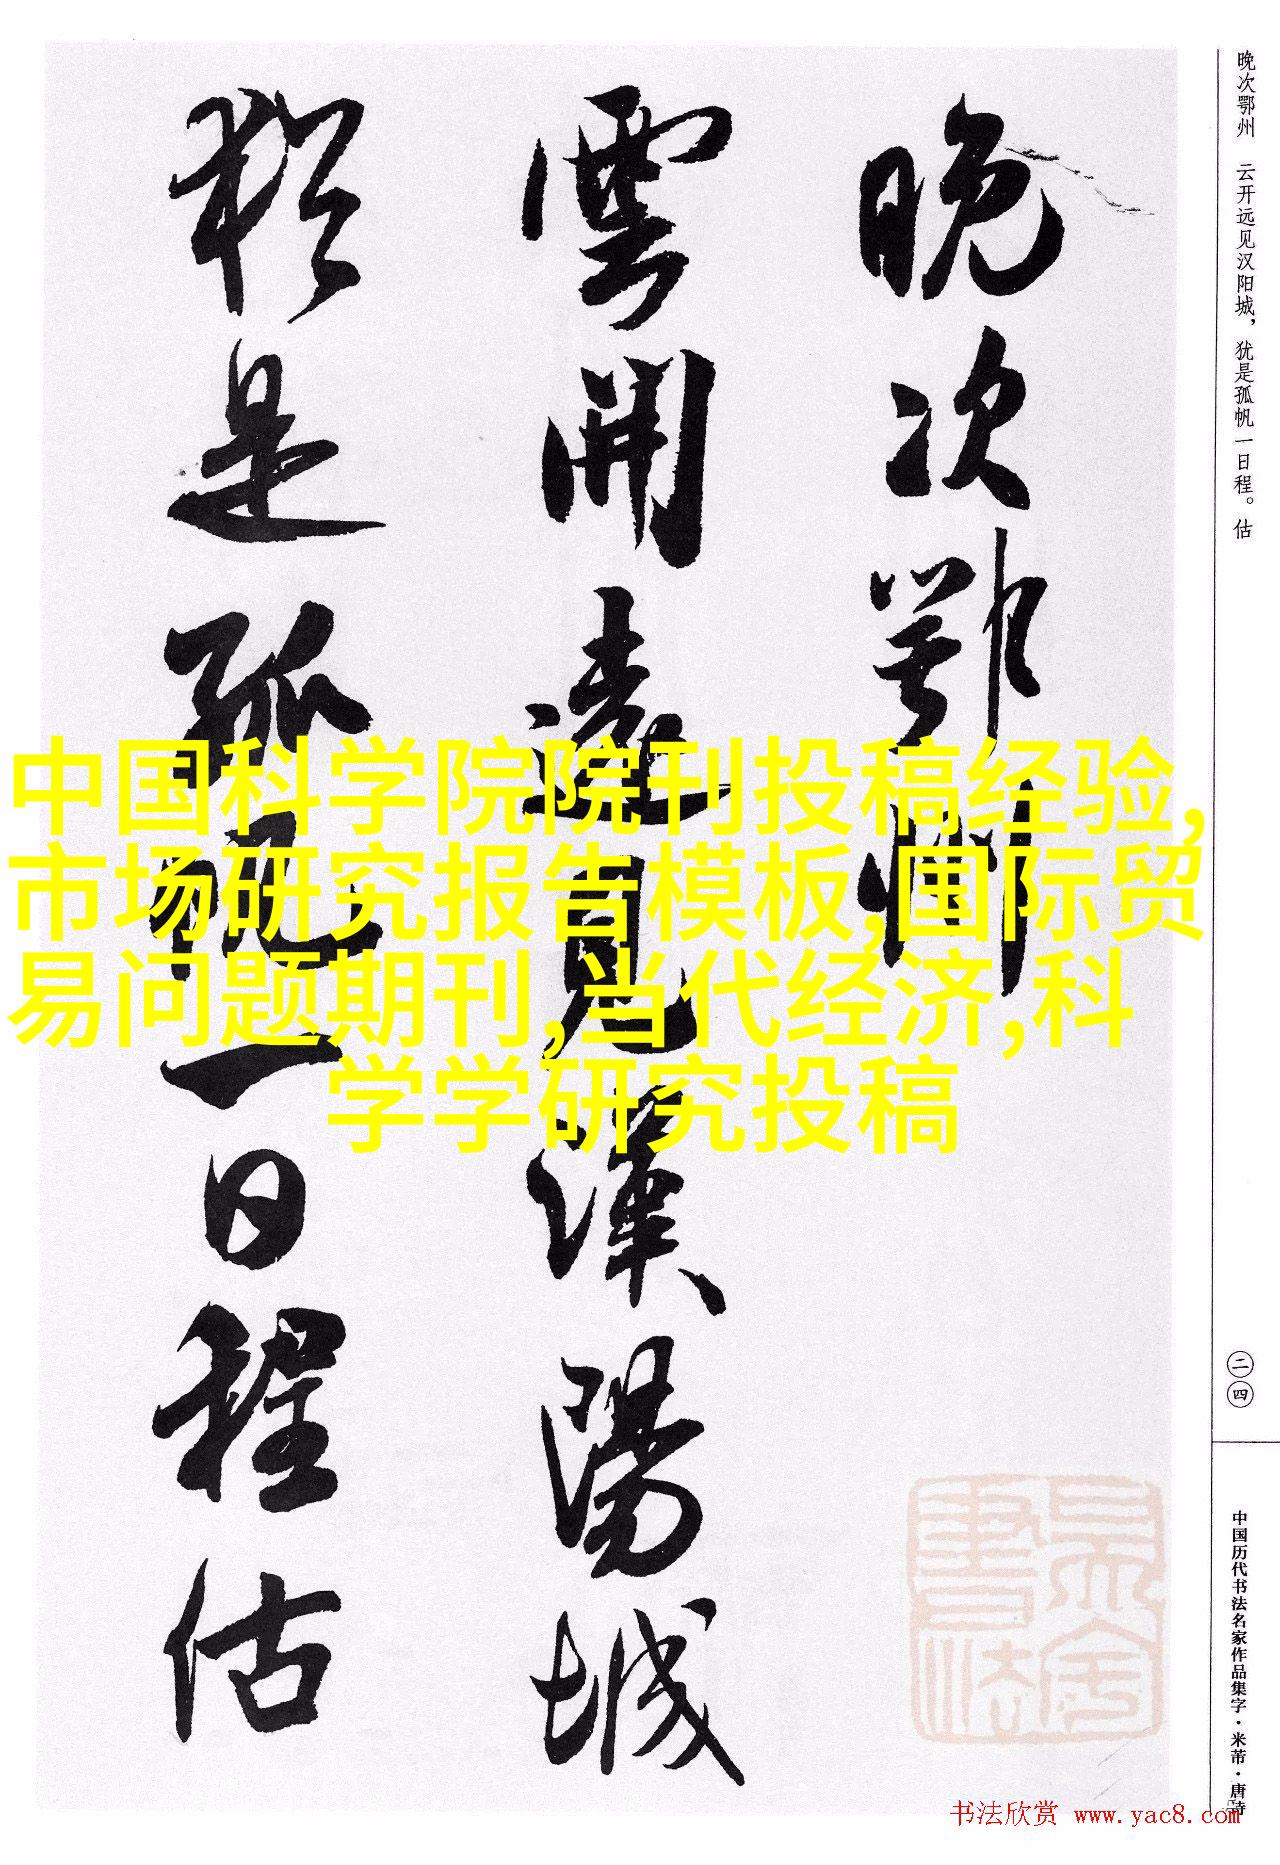 晚次鄂州　云开远见汉阳城，犹是孤帆一日程。估
晚次鄂州
雲開遠見漢陽城
猶是孤帆一日程估
中国科学院院刊投稿经验,
市场研究报告模板,国际贸
易问题期刊,当代经济,科
学学研究投稿
二四
中国历代书法名家作品集字·米芾·唐诗
书法欣赏 www.yac8.com